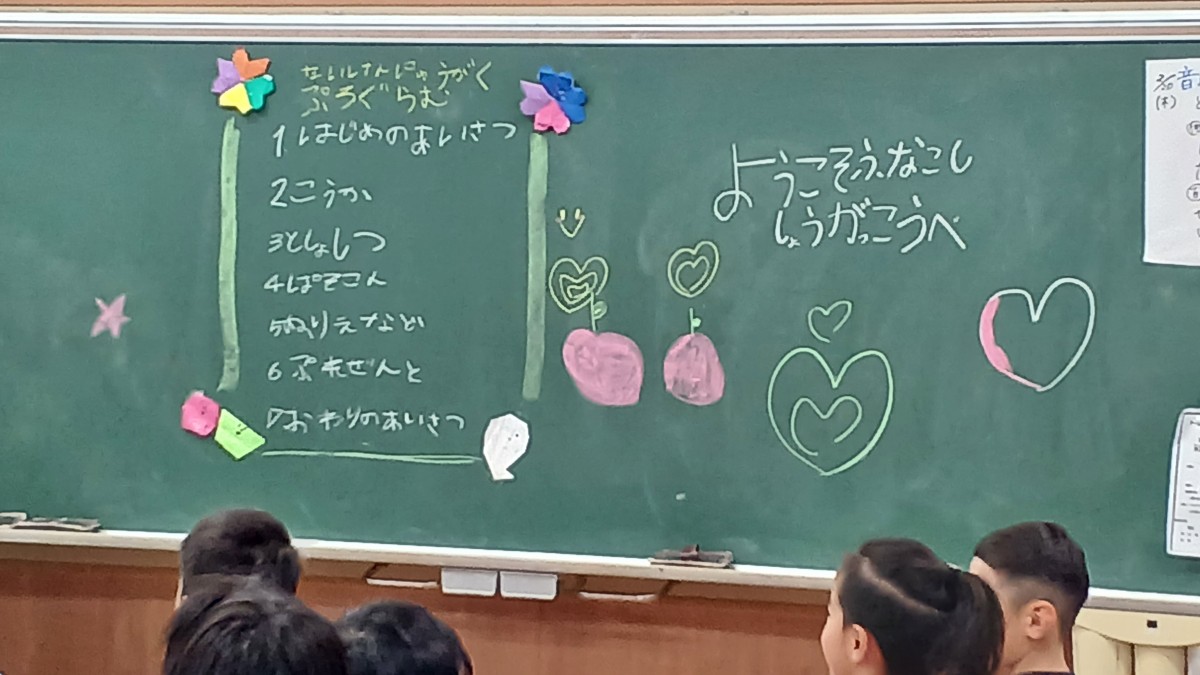 たいけんにゅうがく
ぷろぐらむ
1はじめのあいさつ
2こうか
3としょしつ
4ぱそこん
5ぬりえなど
6ぷれぜんと
7おわりのあいさつ
ようこそふなこし
しょうがっこうへ
2/20
(木)
音